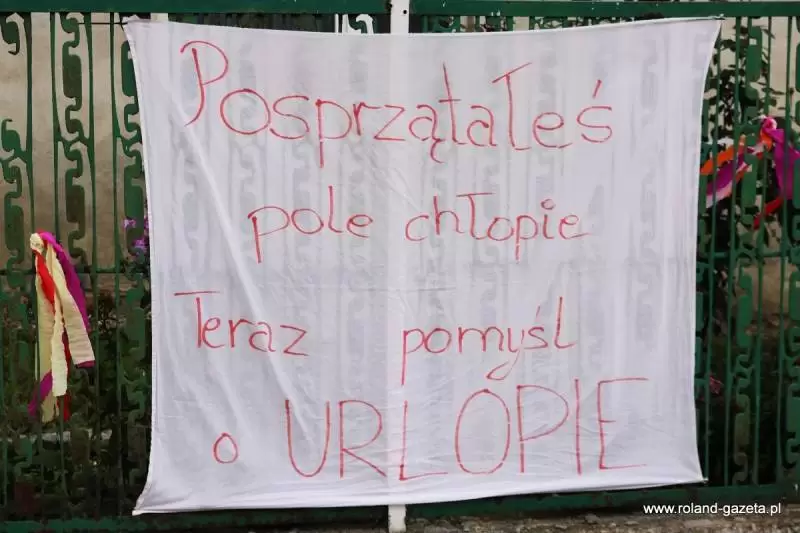 Posprzątałeś
pole chłopie
Teraz pomyśl
o URLOPIE
www.roland-gazeta.pl